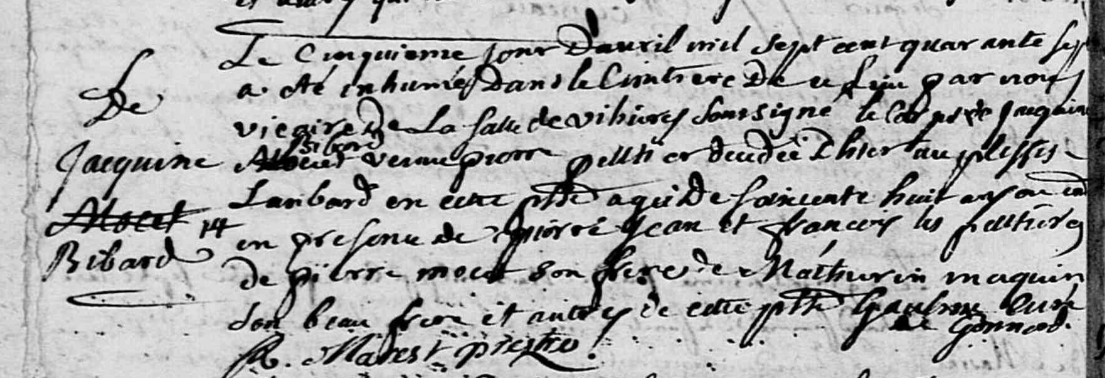 De
Jacquine
Mocet
Bibard
Le Cinquieme jour D'avril mil sept cent quarante sept
a été inhumée Dans le Cimtiere De ce lieu par nous
vicaire de La salle de vihiers soussigné le Corps de Jacquine
Bibard veuve pierre pelltier decedée D'hier au plessis
Lambard en cette psse agée de soixente huit ans ou
en presence de pierre Jean et francois les pelltiers
de pierre mocet son frere de Mathurin maquin
son beau frere et autres de cette psse Gaudin Curé
de Gonnord
R. Marest prestre